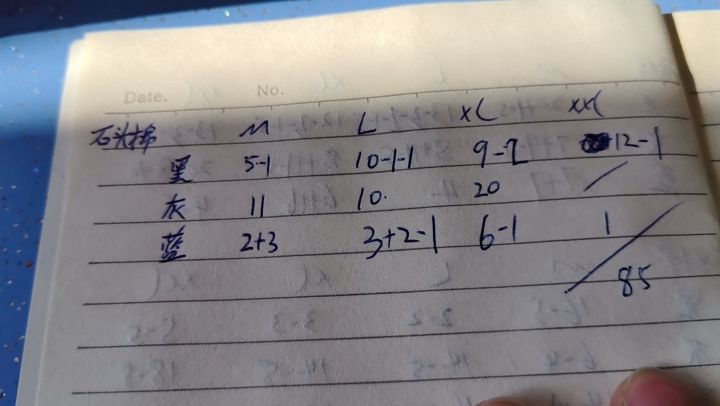 Date. No.
石头棉 M L XL XXL
黑 5-1 10-1-1 9-2 12-1
灰 11 10. 20 /
蓝 2+3 3+2-1 6-1 1
85